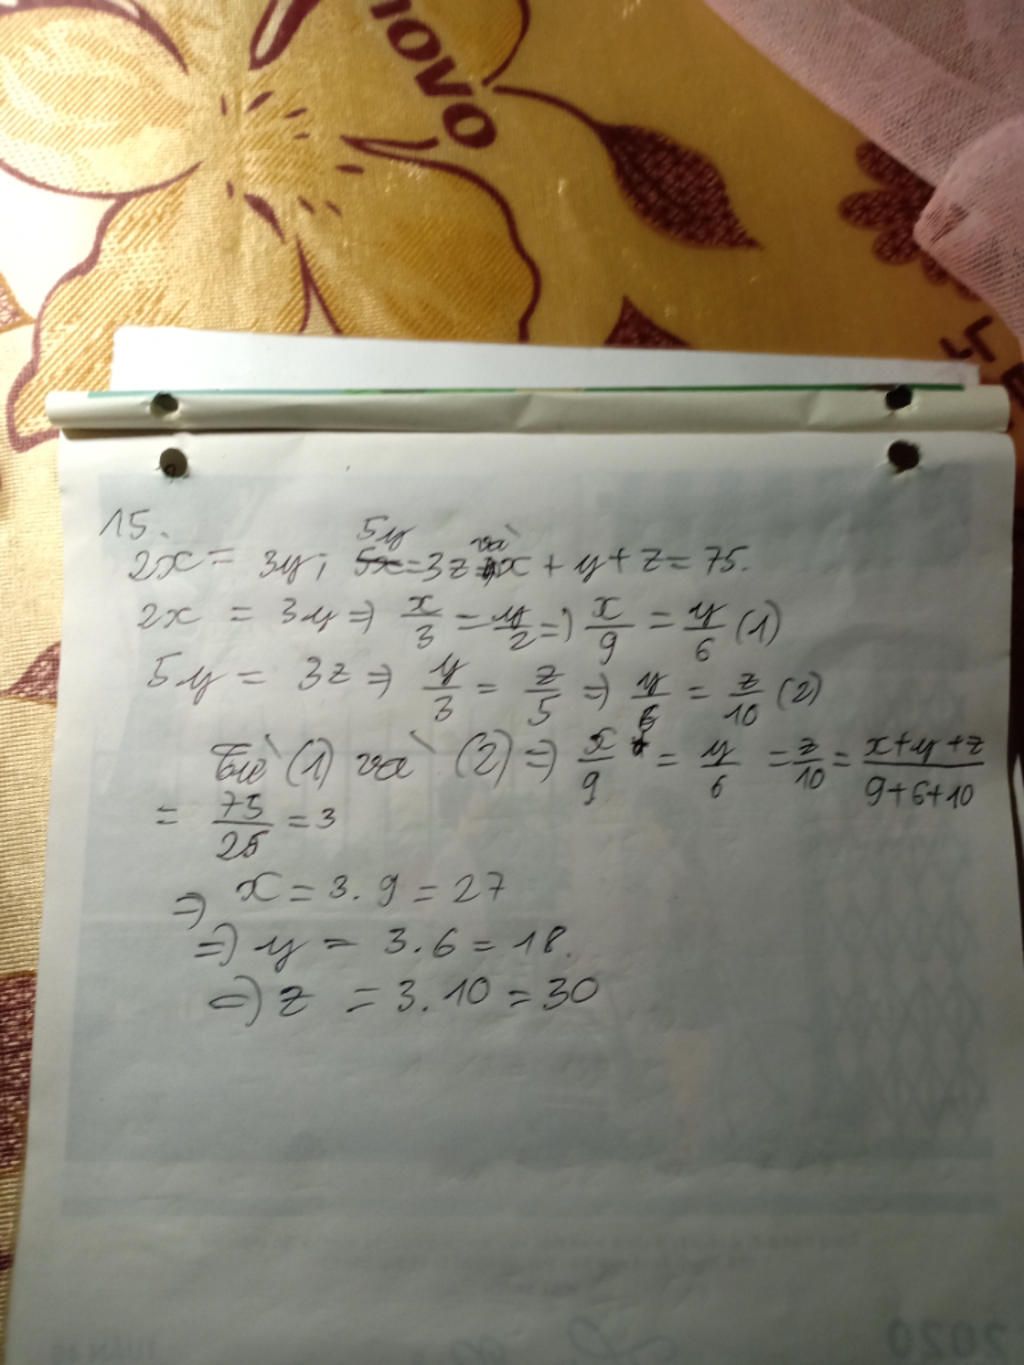 NOVO
15.
5y và
2x = 3y; 5x = 3z x + y + z = 75.
2x = 3y => x/3 = y/2 => x/9 = y/6 (1)
5y = 3z => y/3 = z/5 => y/6 = z/10 (2)
Từ (1) và (2) => x/9 = y/6 = z/10 = x+y+z/9+6+10
= 75/25 = 3
=> x = 3.9 = 27
=> y = 3.6 = 18.
=> z = 3.10 = 30
2020